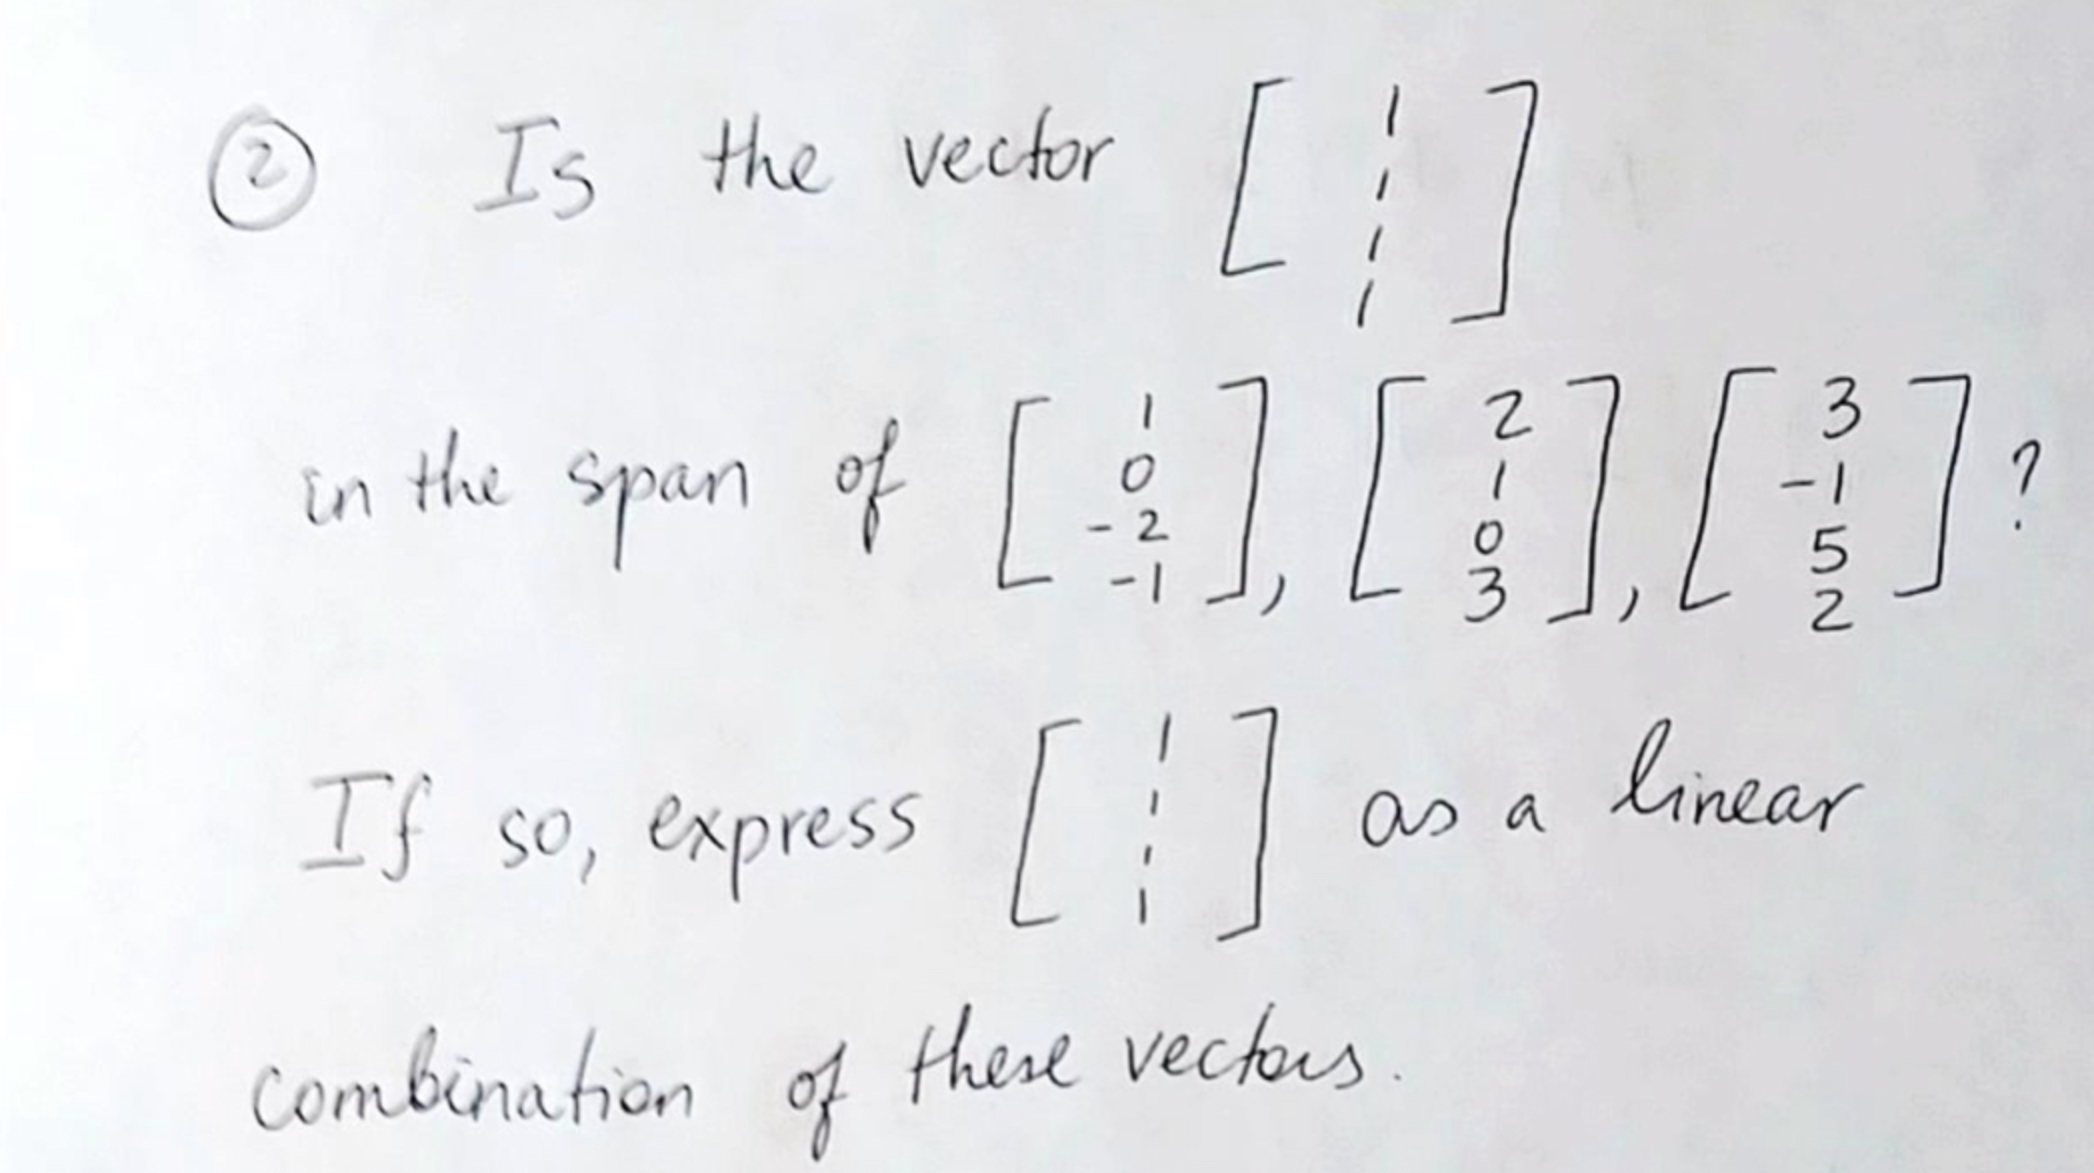 ② Is the vector [1 1 1 1]
in the span of [1 0 -2 -1], [2 1 0 3], [3 -1 5 2]?
If so, express [1 1 1 1] as a linear
combination of these vectors.